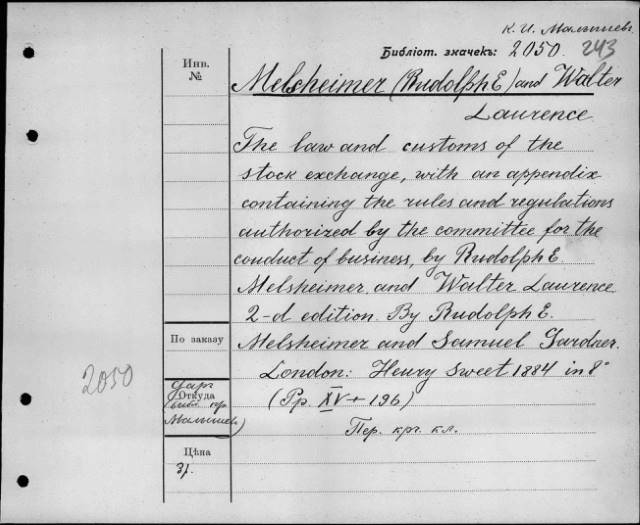 К. И. Малышевъ
Библіот. значекъ: 2050. 243
Инв.
№
Melsheimer (Rudolph E) and Walter
Laurence
The law and customs of the
stock exchange, with an appendix
containing the rules and regulations
authorized by the committee for the
conduct of business, by Rudolph E.
Melsheimer and Walter Laurence
2-d edition. By Rudolph E.
По заказу
Melsheimer and Samuel Gardner.
London: Henry Sweet 1884 in 8°
2050
даръ
Откуда
Малышева)
(Pp. XV + 196)
Пер. кл.
Цѣна
3р.